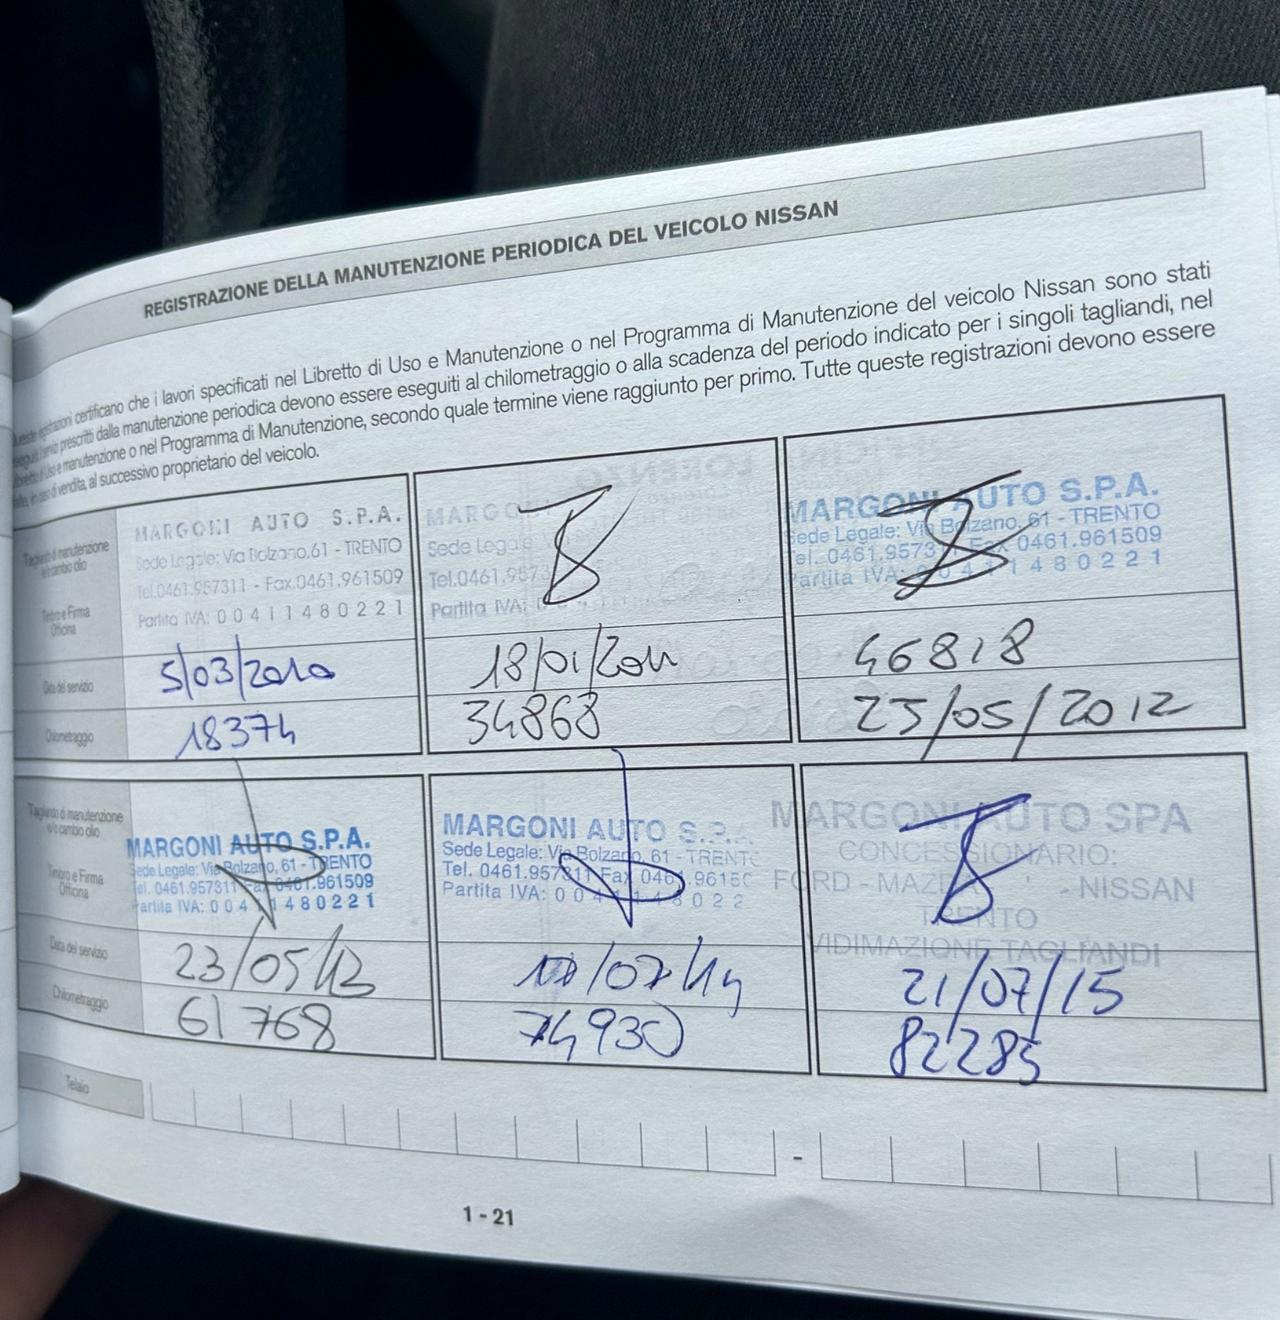 REGISTRAZIONE DELLA MANUTENZIONE PERIODICA DEL VEICOLO NISSAN
registrazioni certificano che i lavori specificati nel Libretto di Uso e Manutenzione o nel Programma di Manutenzione del veicolo Nissan sono stati
eseguiti. I servizi prescritti dalla manutenzione periodica devono essere eseguiti al chilometraggio o alla scadenza del periodo indicato per i singoli tagliandi, nel
Libretto di Uso e manutenzione o nel Programma di Manutenzione, secondo quale termine viene raggiunto per primo. Tutte queste registrazioni devono essere
in caso di vendita, al successivo proprietario del veicolo.
Tagliando di manutenzione
e/o cambio olio
Timbro e Firma
Officina
Data del servizio
Chilometraggio
MARGONI AUTO S.P.A.
Sede Legale: Via Bolzano,61 - TRENTO
Tel.0461.957311 - Fax.0461.961509
Partita IVA: 00411480221
5/03/2010
18374
MARGO
Sede Lega
Tel.0461.957
Partita IVA:
18/01/2011
34868
MARGONI AUTO S.P.A.
Sede Legale: Via Bolzano, 61 - TRENTO
Tel. 0461.9573 Fax 0461.961509
Partita IVA: 00411480221
46818
25/05/2012
Tagliando di manutenzione
e/o cambio olio
Timbro e Firma
Officina
Data del servizio
Chilometraggio
MARGONI AUTO S.P.A.
Sede Legale: Via Bolzano, 61 - TRENTO
Tel. 0461.957311 Fax 0461.961509
Partita IVA: 00411480221
23/05/13
61768
MARGONI AUTO S.P.A.
Sede Legale: Via Bolzano, 61 - TRENTO
Tel. 0461.957311 Fax 0461.96150
Partita IVA: 0041148022
/07/14
74930
MARGONI AUTO SPA
CONCESSIONARIO:
FORD - MAZDA - NISSAN
TRENTO
VIDIMAZIONE TAGLIANDI
21/07/15
82285
Telaio
-
1 - 21